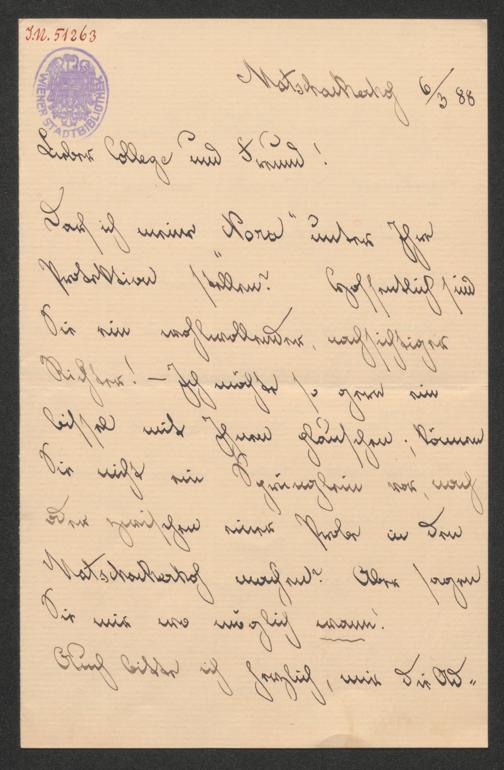 I.N. 51263
WIENER STADTBIBLIOTHEK
Matschakerhof 6/3 88
Lieber College und Freund!
Darf ich meine „Nora“ unter Ihre
Protektion stellen? Hoffentlich sind
Sie ein wohlwollender, nachsichtiger
Richter! – Ich möchte so gern ein
bissel mit Ihnen plauschen; können
Sie nicht ein Sprünglein vor, nach
oder zwischen einer Probe in den
Matschakerhof machen? Aber sagen
Sie mir wo möglich wann!
Auch bitte ich herzlich, mir die Ad=